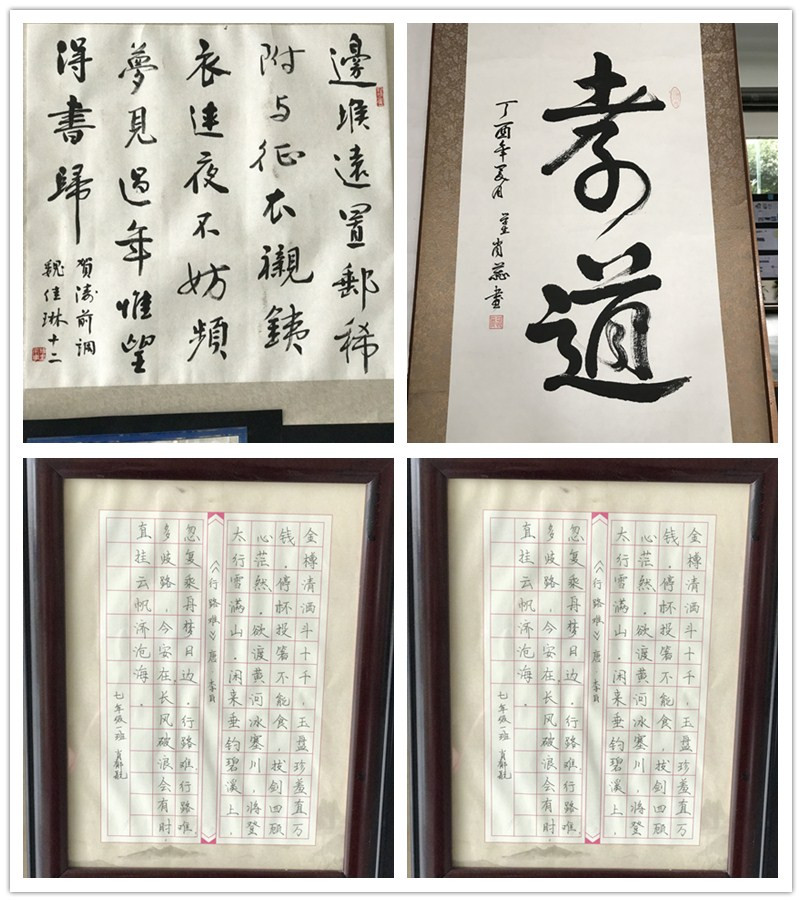 邊堠遠置郵稀
附与征衣襯鐵
衣連夜不妨頻
夢見過年惟望
得書歸
賀涛前调
魏佳琳十二
孝道
丁酉年夏月 肖蕊書
金樽清酒斗十千,玉盘珍羞直万
钱。停杯投箸不能食,拔剑四顾
心茫然。欲渡黄河冰塞川,将登
太行雪满山。闲来垂钓碧溪上,
《行路难》唐 李白
忽复乘舟梦日边。行路难,行路难,
多歧路,今安在,长风破浪会有时
直挂云帆济沧海。
七年级一班 肖
金樽清酒斗十千,玉盘珍羞直万
钱。停杯投箸不能食,拔剑四顾
心茫然。欲渡黄河冰塞川,将登
太行雪满山。闲来垂钓碧溪上,
《行路难》唐 李白
忽复乘舟梦日边。行路难,行路难,
多歧路,今安在,长风破浪会有时
直挂云帆济沧海。
七年级一班 肖